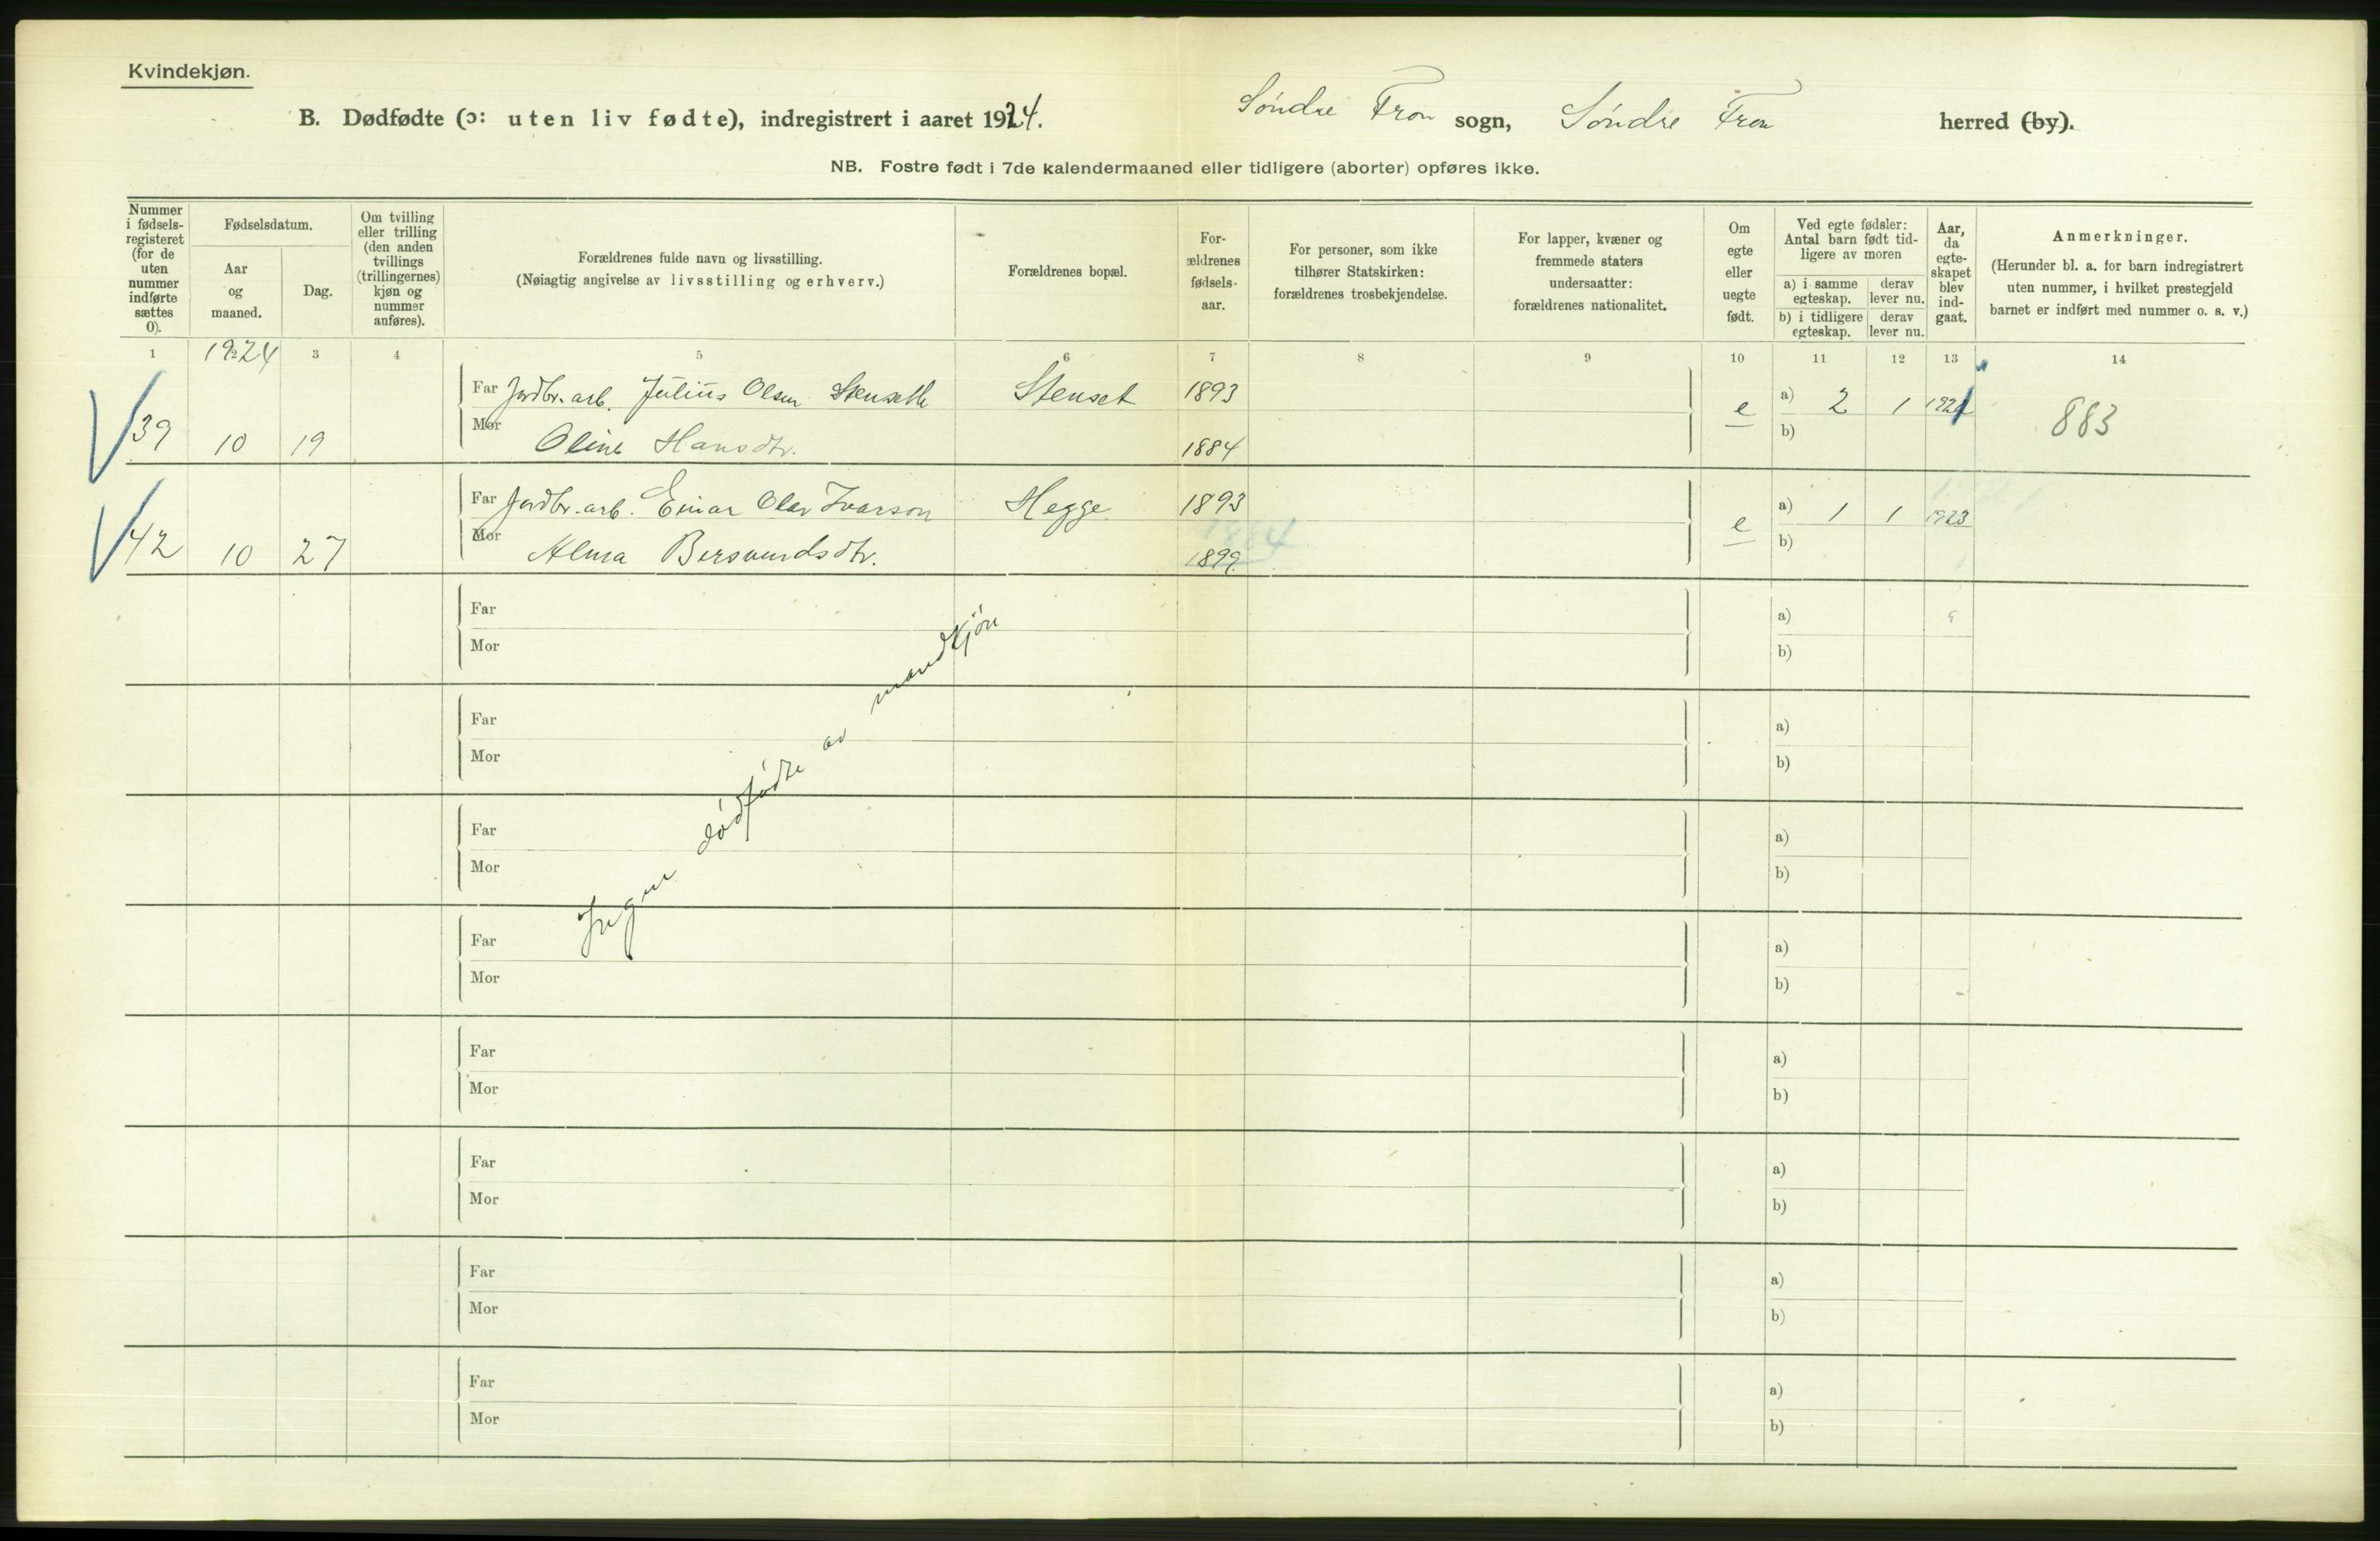 Kvindekjøn.
B. Dødfødte (ɔ: uten liv fødte), indregistrert i aaret 1924. Søndre Fron sogn, Søndre Fron herred (by).
NB. Fostre født i 7de kalendermaaned eller tidligere (aborter) opføres ikke.
Nummer i fødsels-registeret (for de uten nummer indførte sættes 0).
Fødselsdatum.
Aar og maaned.
Dag.
Om tvilling eller trilling (den anden tvillings (trillingernes) kjøn og nummer anføres).
Forældrenes fulde navn og livsstilling.
(Nøiagtig angivelse av livsstilling og erhverv.)
Forældrenes bopæl.
For-ældrenes fødsels-aar.
For personer, som ikke tilhører Statskirken: forældrenes trosbekjendelse.
For lapper, kvæner og fremmede staters undersaatter: forældrenes nationalitet.
Om egte eller uegte født.
Ved egte fødsler: Antal barn født tid-ligere av moren
a) i samme egteskap.
derav lever nu.
b) i tidligere egteskap.
derav lever nu.
Aar, da egte-skapet blev ind-gaat.
Anmerkninger.
(Herunder bl. a. for barn indregistrert uten nummer, i hvilket prestegjeld barnet er indført med nummer o. s. v.)
1 1924 3 4 5 6 7 8 9 10 11 12 13 14
Far Jordbr. arb. Julius Olsen Stenseth Stenset 1893 e a) 2 1 883
39 10 19 Mor Oline Hansdtr. 1884 b)
Far Jordbr. arb. Einar Olav Ivarson Hegge 1893 e a) 1 1 1923
42 10 27 Mor Alma Bersvendsdtr. 1899 b)
Far a)
Mor b)
Far a)
Mor b)
Far a)
Mor b)
Ingen dødfødte av mandkjøn
Far a)
Mor b)
Far a)
Mor b)
Far a)
Mor b)
Far a)
Mor b)
Far a)
Mor b)